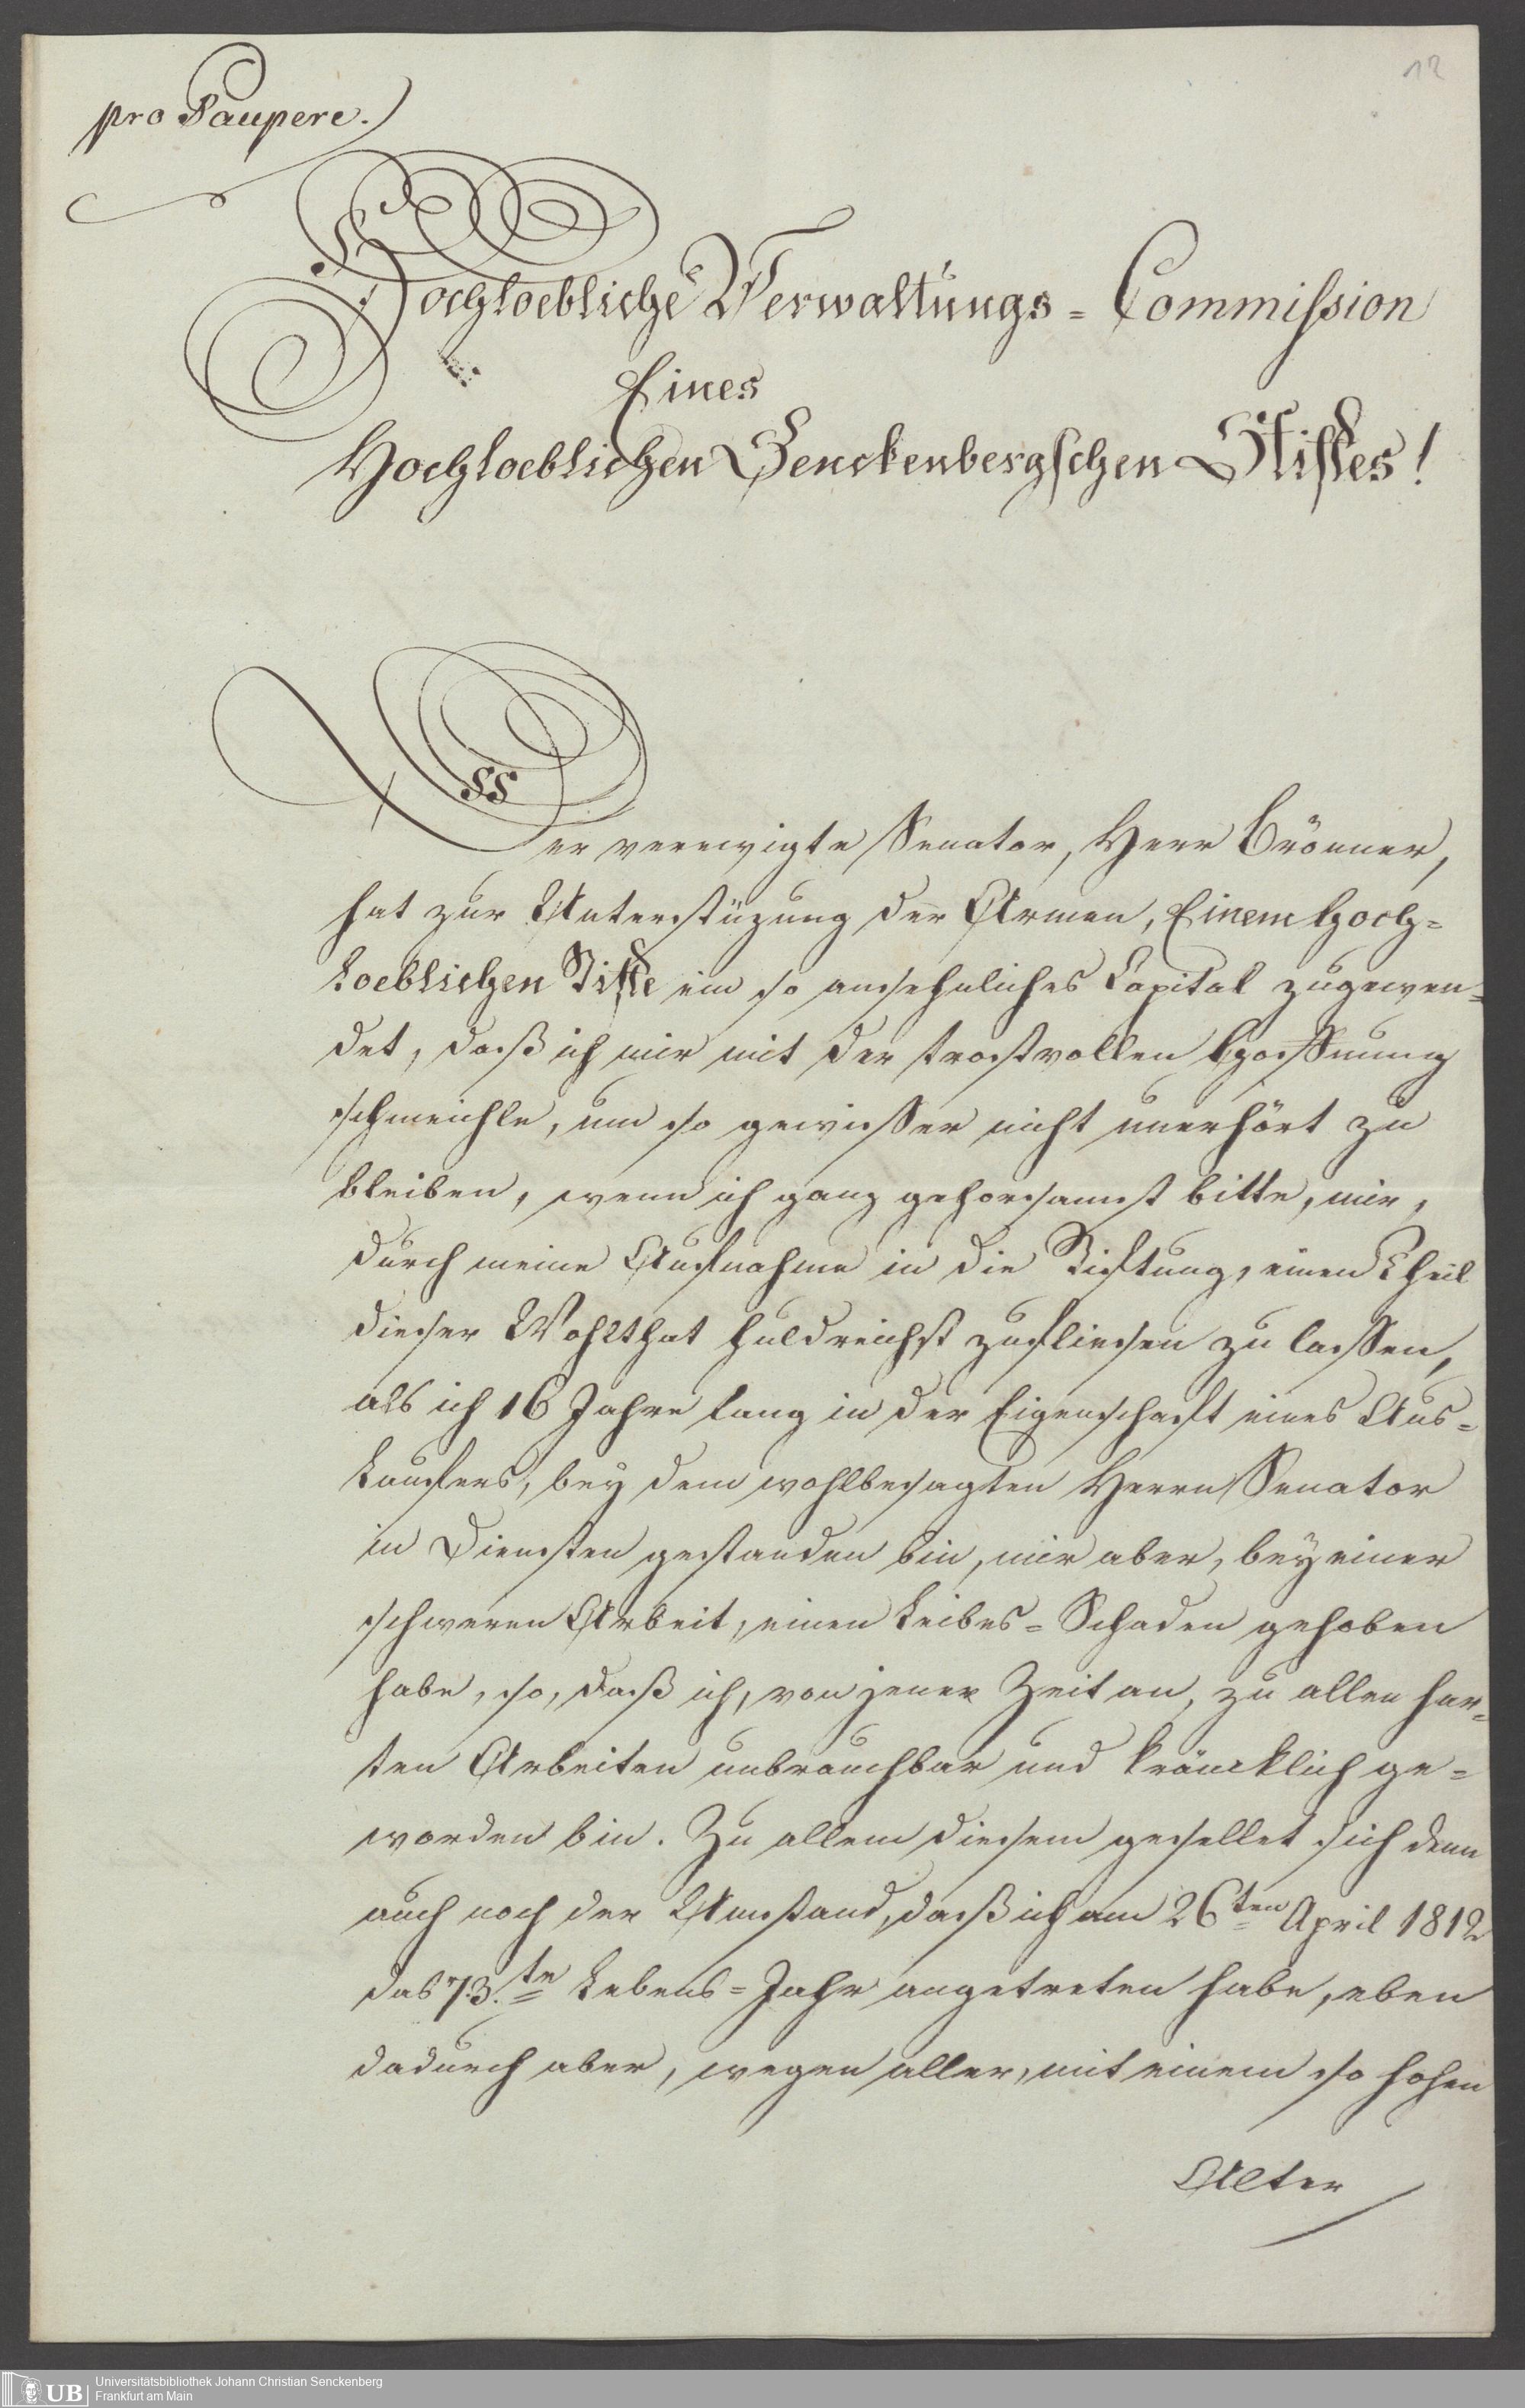 12
pro Paupere.
Hochloebliche Verwaltungs-Commission
Eines
Hochloeblichen Senckenbergschen Stiftes!
Der verewigte Senator, Herr Brönner,
hat zur Unterstüzung der Armen, Einem Hoch-
Loeblichen Stifte ein so ansehnliches Capital zugewen-
det, daß ich mir mit der trostvollen Hoffnung
schmeichle, um so gewisser nicht unerhört zu
bleiben, wenn ich ganz gehorsamst bitte, mir,
durch meine Aufnahme in die Stiftung, einen Theil
dieser Wohlthat huldreichst zufliesen zu lassen,
als ich 16 Jahre lang in der Eigenschaft eines Aus-
laufers, bey dem wohlbesagten Herrn Senator
in Diensten gestanden bin, mir aber, bey einer
schweren Arbeit, einen Leibes-Schaden gehoben
habe, so, daß ich, von jener Zeit an, zu allen har-
ten Arbeiten unbrauchbar und kräncklich ge-
worden bin. Zu allem diesem gesellet sich denn
auch noch der Umstand, daß ich am 26ten April 1812
das 73.te Lebens-Jahr angetreten habe, eben
dadurch aber, wegen aller, mit einem so hohen
Alter
UB
Universitätsbibliothek Johann Christian Senckenberg
Frankfurt am Main